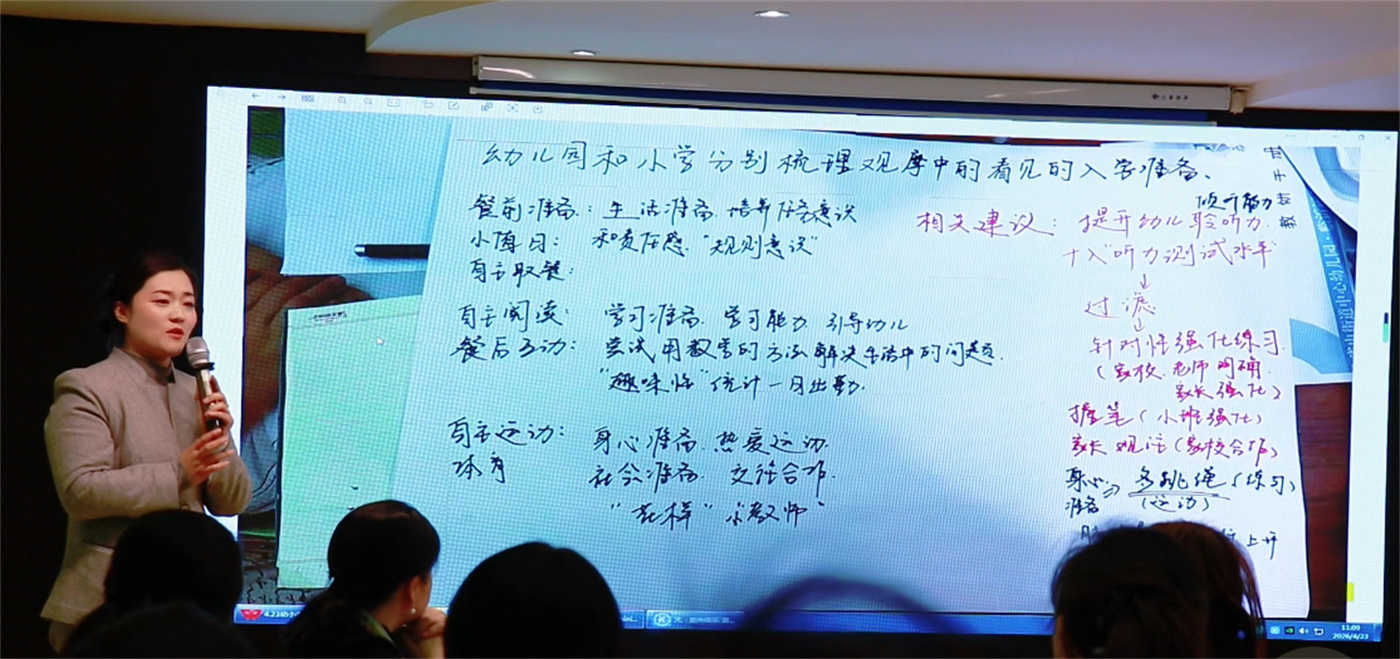 幼儿园和小学分别梳理观摩中的看见的入学准备、
餐前准备:生活准备 培养任务意识
小值日: 和责任感.“规则意识”
自主取餐:
自主阅读: 学习准备. 学习能力. 引导幼儿
餐后互动: 尝试用数学的方法解决生活中的问题.
“趣味性”统计一日出勤.
自主运动: 身心准备. 热爱运动.
体育 社会准备. 交往合作.
“花样” 小教师”
倾听能力
相关建议: 提升幼儿聆听力.
十入“听力测试水平
↓
过滤
↓
针对性强化练习.
(家校. 老师明确.
家长强化)
握笔(小班强化)
家长观念(家校合作)
身心⇒ 多跳绳(练习)
准备 (运动)
上升
中心幼儿园
4.23幼小
11:09
2026/4/23